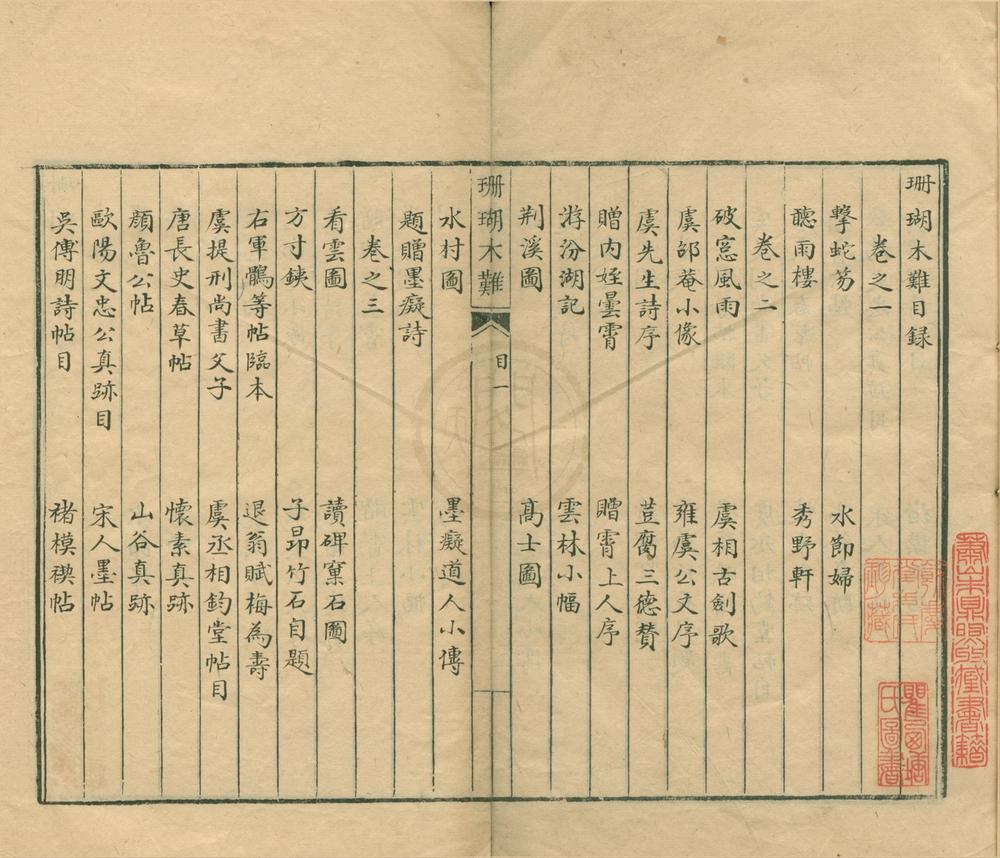 珊瑚木難目録
卷之一
擊蛇笏 水節婦
聽雨樓 秀野軒
卷之二
破窓風雨 虞相古劍歌
虞邵菴小像 雍虞公文序
虞先生詩序 荳腐三德賛
贈内姪曇霄 贈霄上人序
游汾湖記 雲林小幅
荆溪圖 髙士圖
珊瑚木難 目一
水村圖 墨癡道人小傳
題贈墨癡詩
卷之三
看雲圖 讀碑窠石圖
方寸鋏 子昂竹石自題
右軍鶻等帖臨本 退翁賦梅為壽
虞提刑尚書父子 虞丞相鈞堂帖目
唐長史春草帖 懷素真跡
顔魯公帖 山谷真跡
歐陽文忠公真跡目 宋人墨帖
吳傅明詩帖目 褚模禊帖
氏圖書